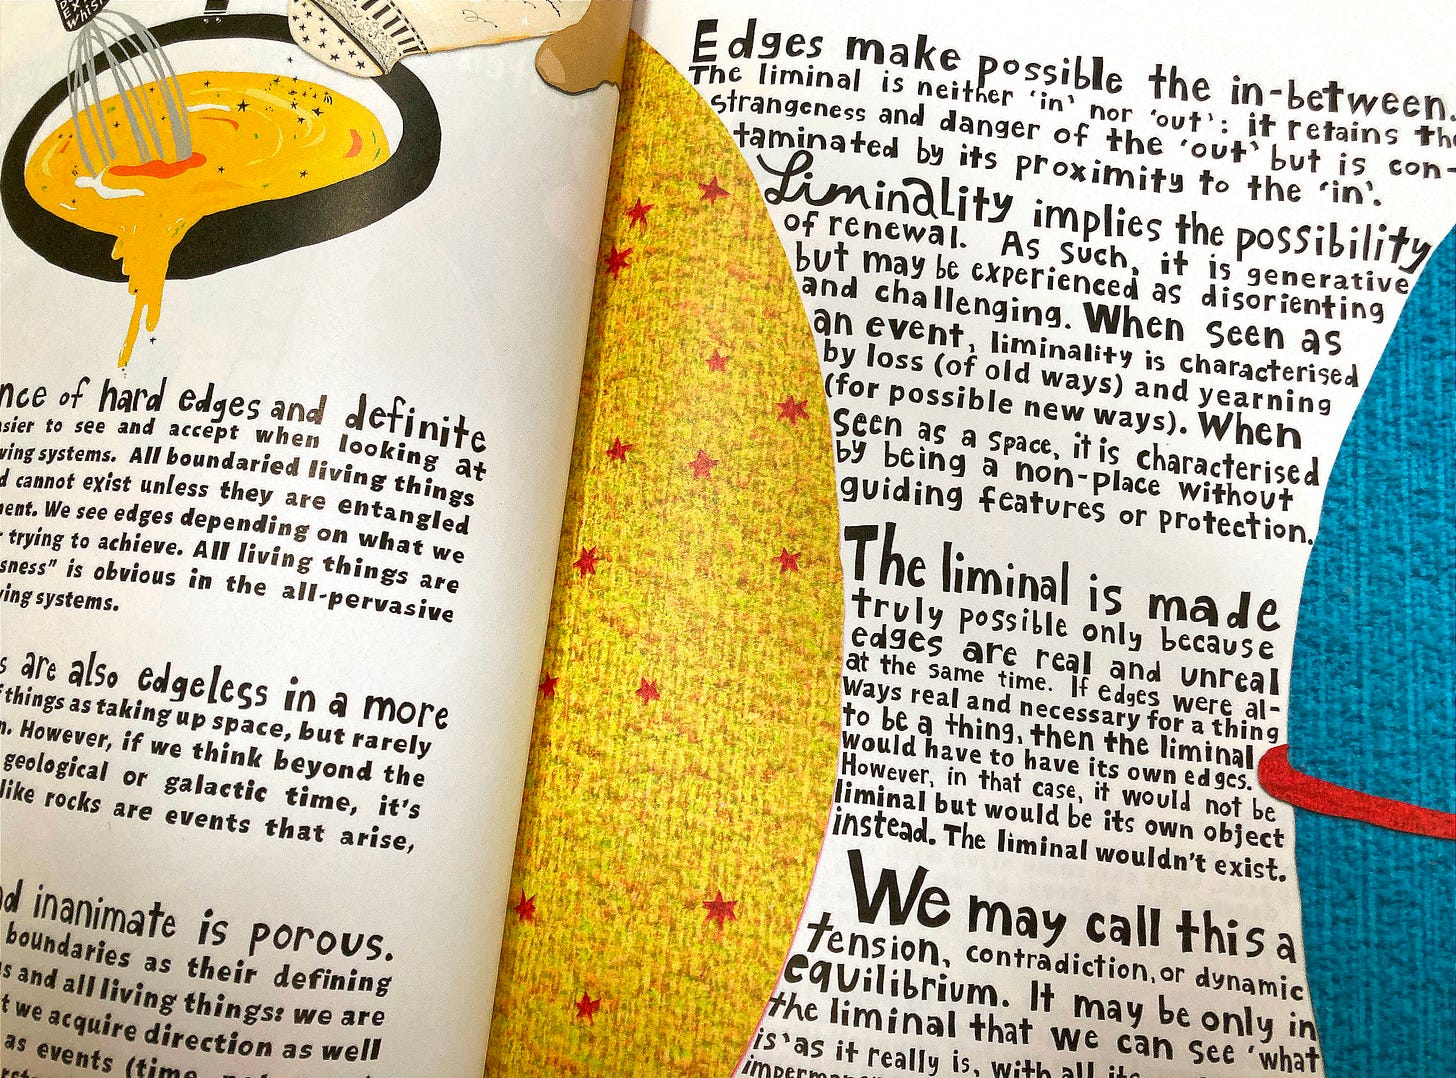 Whisk
nce of hard edges and definite
sier to see and accept when looking at
ving systems. All boundaried living things
d cannot exist unless they are entangled
ent. We see edges depending on what we
trying to achieve. All living things are
sness" is obvious in the all-pervasive
ving systems.
s are also edgeless in a more
things as taking up space, but rarely
n. However, if we think beyond the
geological or galactic time, it's
like rocks are events that arise,
nd inanimate is porous.
boundaries as their defining
s and all living things: we are
t we acquire direction as well
as events (time
Edges make possible the in-between.
The liminal is neither 'in' nor 'out': it retains the
strangeness and danger of the 'out' but is con-
taminated by its proximity to the 'in'.
Liminality implies the possibility
of renewal. As such, it is generative
but may be experienced as disorienting
and challenging. When seen as
an event, liminality is characterised
by loss (of old ways) and yearning
(for possible new ways). When
seen as a space, it is characterised
by being a non-place without
guiding features or protection.
The liminal is made
truly possible only because
edges are real and unreal
at the same time. If edges were al-
ways real and necessary for a thing
to be a thing, then the liminal
would have to have its own edges.
However, in that case, it would not be
liminal but would be its own object
instead. The liminal wouldn't exist.
We may call this a
tension, contradiction, or dynamic
equilibrium. It may be only in
the liminal that we can see 'what
is' as it really is, with all its